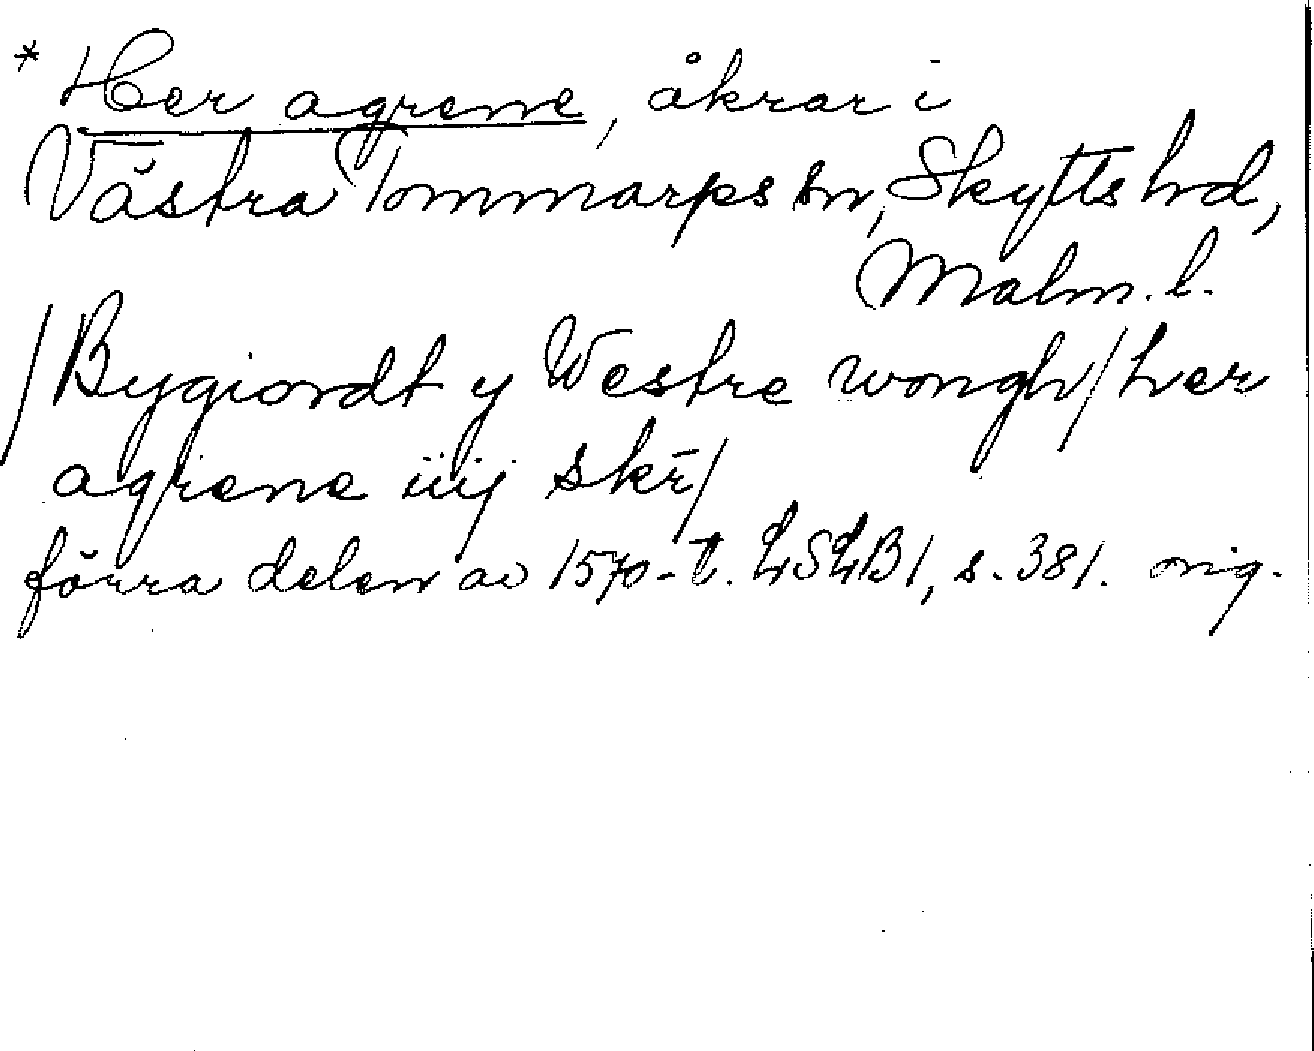 * Her agrene, åkrar i
Västra Tommarps sn, Skytts hd,
Malm. l.
/Bygiordt y Westre wongh/her
agrene iiij skr̄/
förra delen av 1570-t. LSLB1, s. 381. orig.